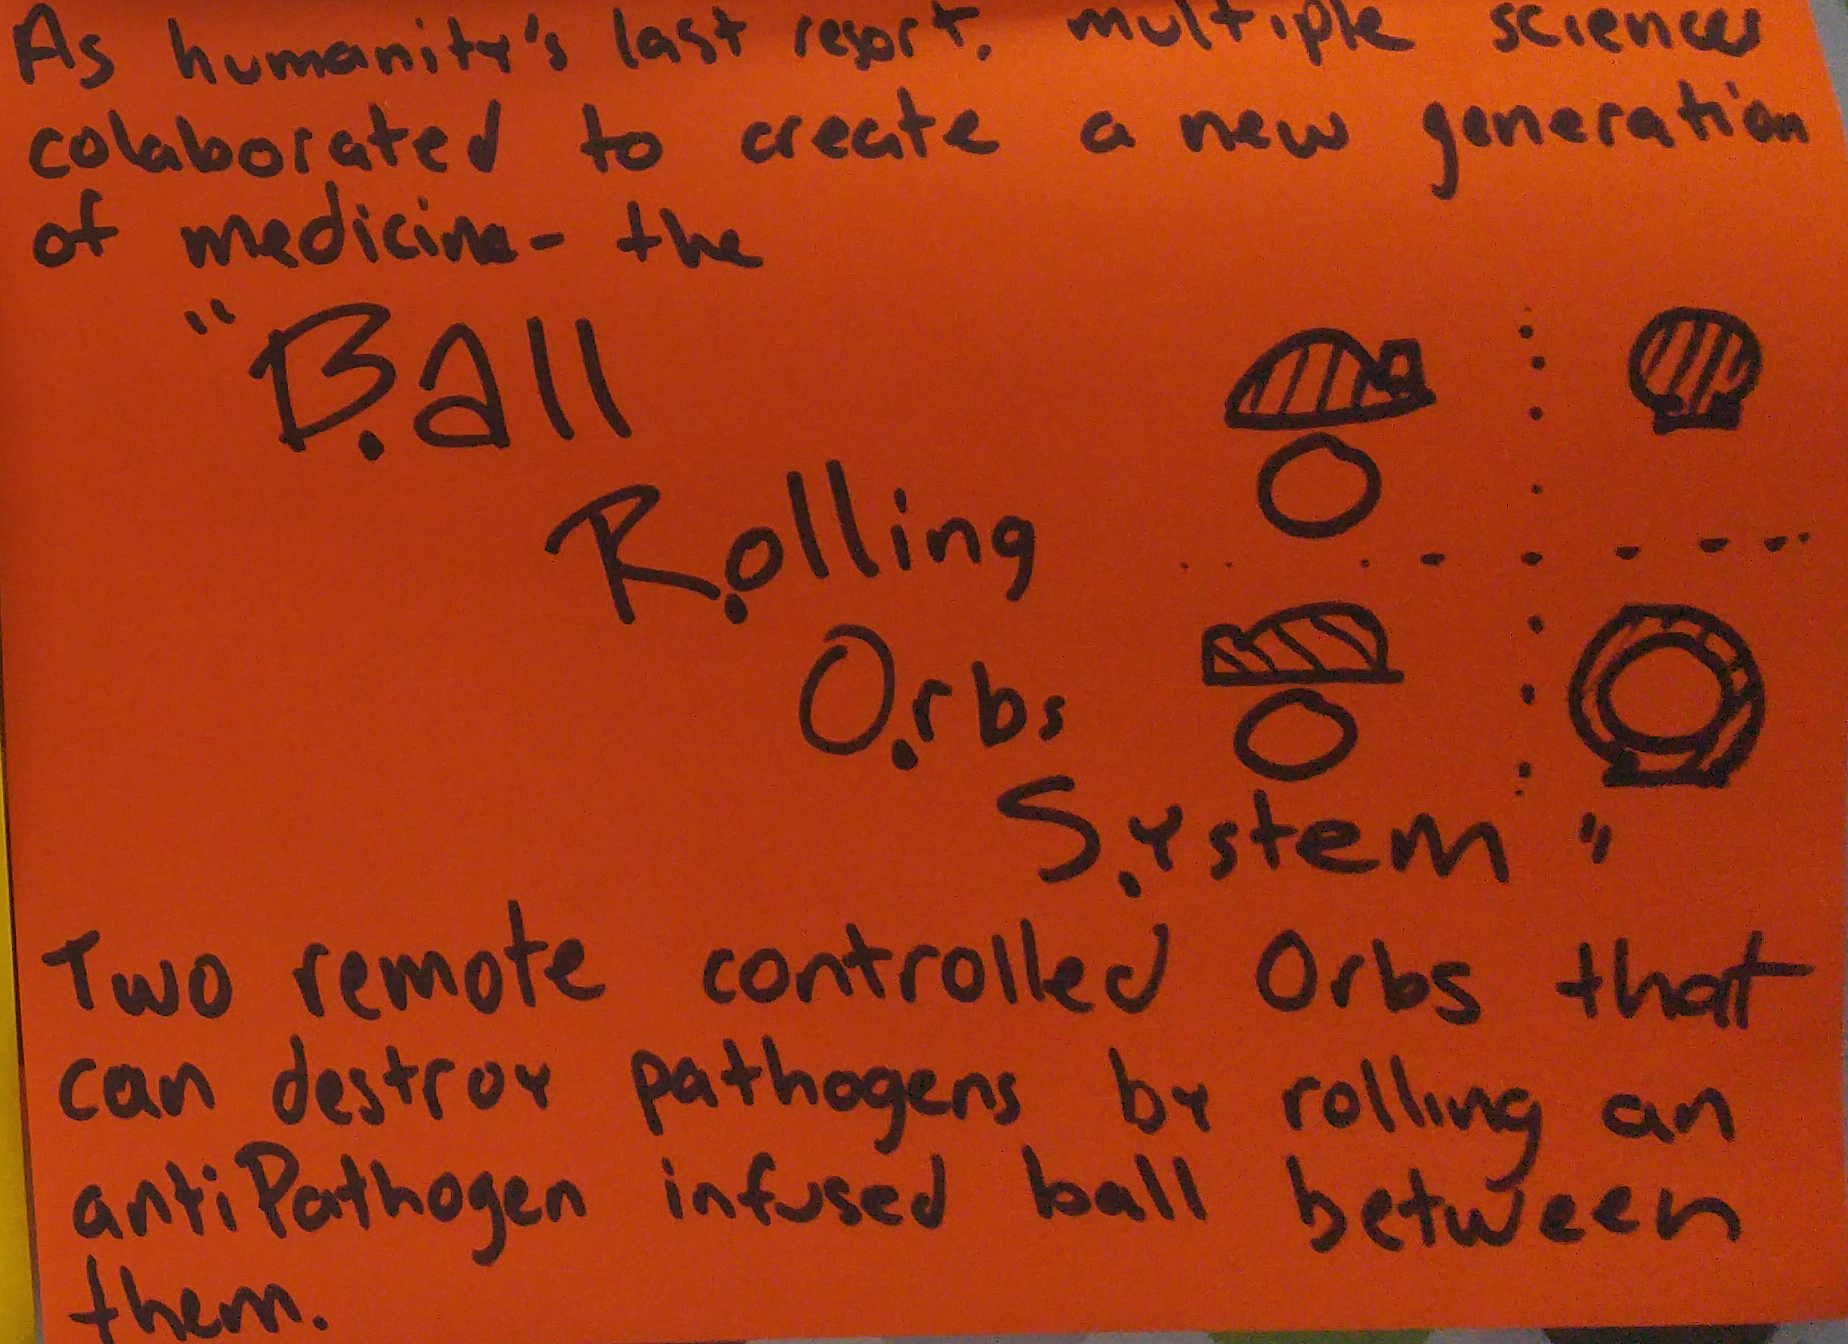 As humanity's last resort, multiple sciences
colaborated to create a new generation
of medicine- the
"B.all
R.olling
O.rbs
S.ystem"
Two remote controlled Orbs that
can destroy pathogens by rolling an
antiPathogen infused ball between
them.